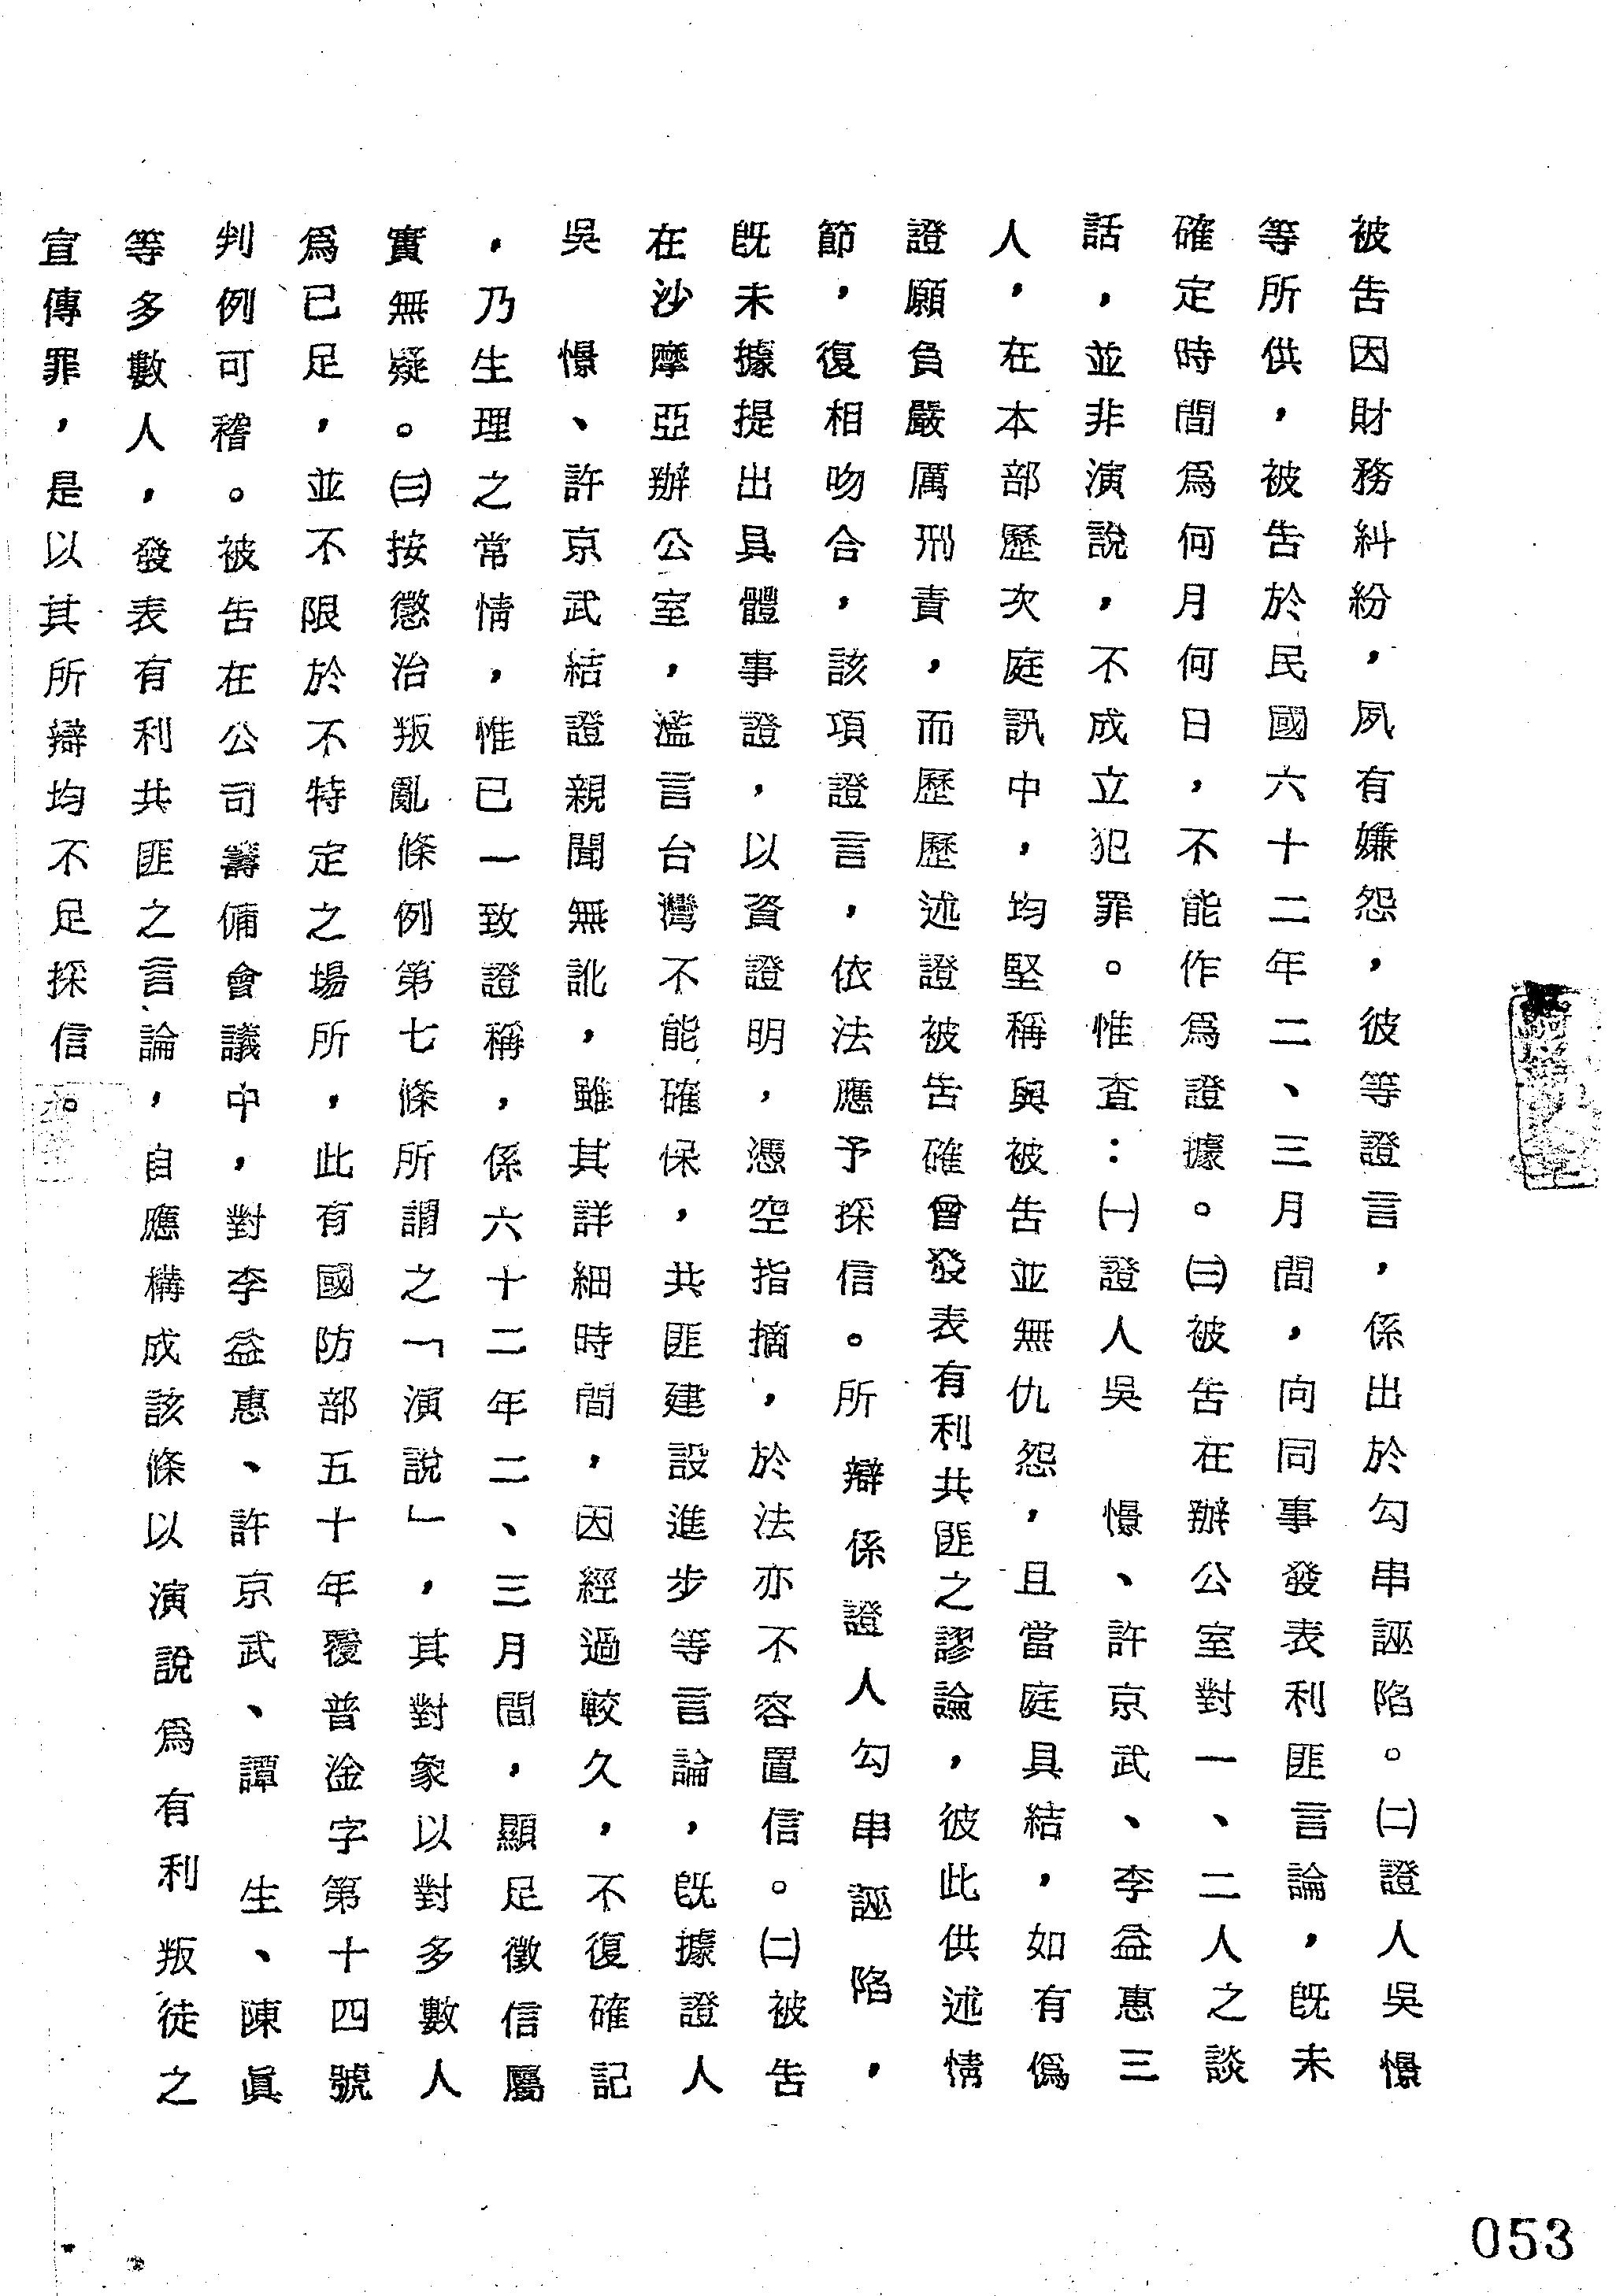 被告因財務糾紛，夙有嫌怨，彼等證言，係出於勾串誣陷。㈡證人吳憬
等所供，被告於民國六十二年二、三月間，向同事發表利匪言論，旣未
確定時間爲何月何日，不能作爲證據。㈢被告在辦公室對一、二人之談
話，並非演說，不成立犯罪。惟查：㈠證人吳　憬、許京武、李益惠三
人，在本部歷次庭訊中，均堅稱與被告並無仇怨，且當庭具結，如有僞
證願負嚴厲刑責，而歷歷述證被告確曾發表有利共匪之謬論，彼此供述情
節，復相吻合，該項證言，依法應予採信。所辯係證人勾串誣陷，
旣未據提出具體事證，以資證明，憑空指摘，於法亦不容置信。㈡被告
在沙摩亞辦公室，濫言台灣不能確保，共匪建設進步等言論，旣據證人
吳　憬、許京武結證親聞無訛，雖其詳細時間，因經過較久，不復確記
，乃生理之常情，惟已一致證稱，係六十二年二、三月間，顯足徵信屬
實無疑。㈢按懲治叛亂條例第七條所謂之「演說」，其對象以對多數人
爲已足，並不限於不特定之場所，此有國防部五十年覆普淦字第十四號
判例可稽。被告在公司籌備會議中，對李益惠、許京武、譚　生、陳眞
等多數人，發表有利共匪之言論，自應構成該條以演說爲有利叛徒之
宣傳罪，是以其所辯均不足採信。
053